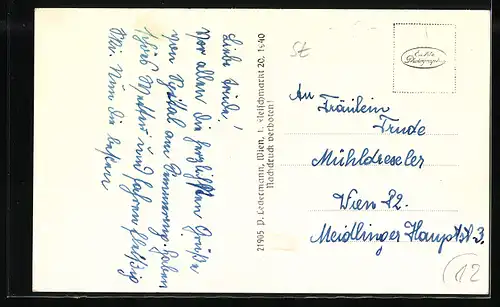 Liebe Trude!
Vor allem die herzlichsten Grüße
von Spital am Semmering. Haben
schönes Wetter und fahren fleißig
Ski. Nun die besten
21905 P. Ledermann, Wien, I. Fleischmarkt 20, 1940
Nachdruck verboten!
St
Echte
Photographie
An Fräulein
Trude
Mühldreseler
Wien 12.
Meidlinger Hauptstr. 3.
12